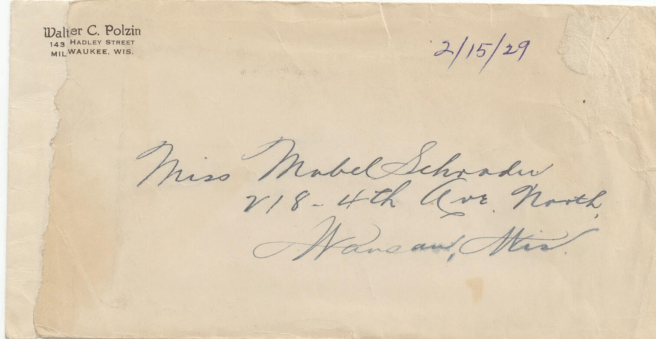 Walter C. Polzin
143 HADLEY STREET
MILWAUKEE, WIS.
2/15/29
Miss Mabel Schrader
218-4th Ave. North,
Wausau, Wis.